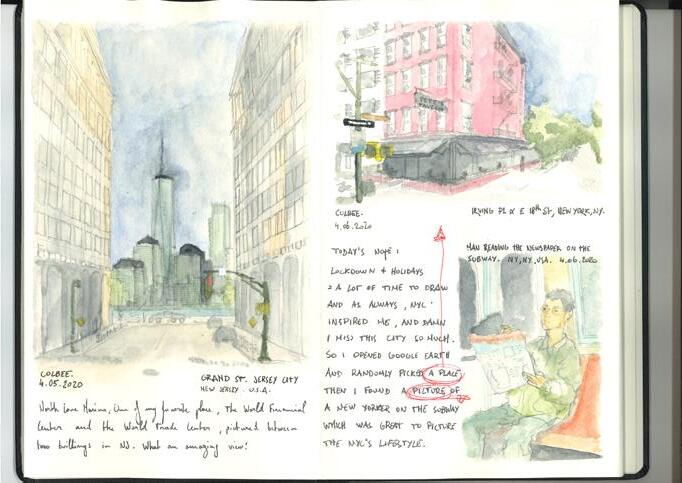 COLBEE.
4.05.2020
GRAND ST. JERSEY CITY
NEW JERSEY. U.S.A.
North Cove Marina, One of my favorite place, The World Financial
Center and the World Trade Center, pictured between
two buildings in NJ. What an amazing view!
TAVERN
COLBEE.
4.06.2020
IRVING PL & E 18th ST, NEW YORK, NY.
TODAY'S NOTE:
LOCKDOWN + HOLIDAYS
= A LOT OF TIME TO DRAW
AND AS ALWAYS, NYC
INSPIRED ME, AND DAMN
I MISS THIS CITY SO MUCH.
SO I OPENED GOOGLE EARTH
AND RANDOMLY PICKED A PLACE,
THEN I FOUND A PICTURE OF
A NEW YORKER ON THE SUBWAY
WHICH WAS GREAT TO PICTURE
THE NYC'S LIFESTYLE.
MAN READING THE NEWSPAPER ON THE
SUBWAY. NY, NY, USA. 4.06.2020